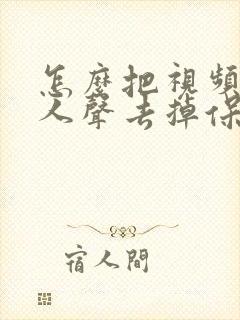 怎麼把視頻
人聲去掉保
宿人間